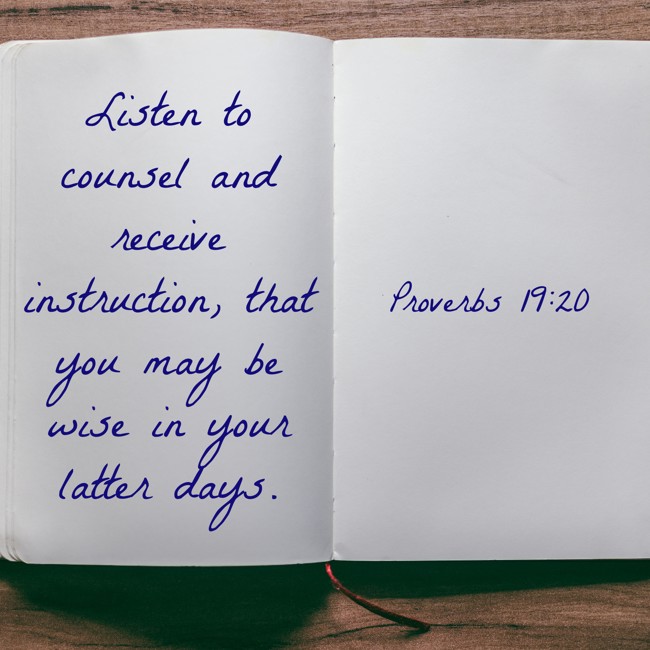 Listen to
counsel and
receive
instruction, that
you may be
wise in your
latter days.
Proverbs 19:20